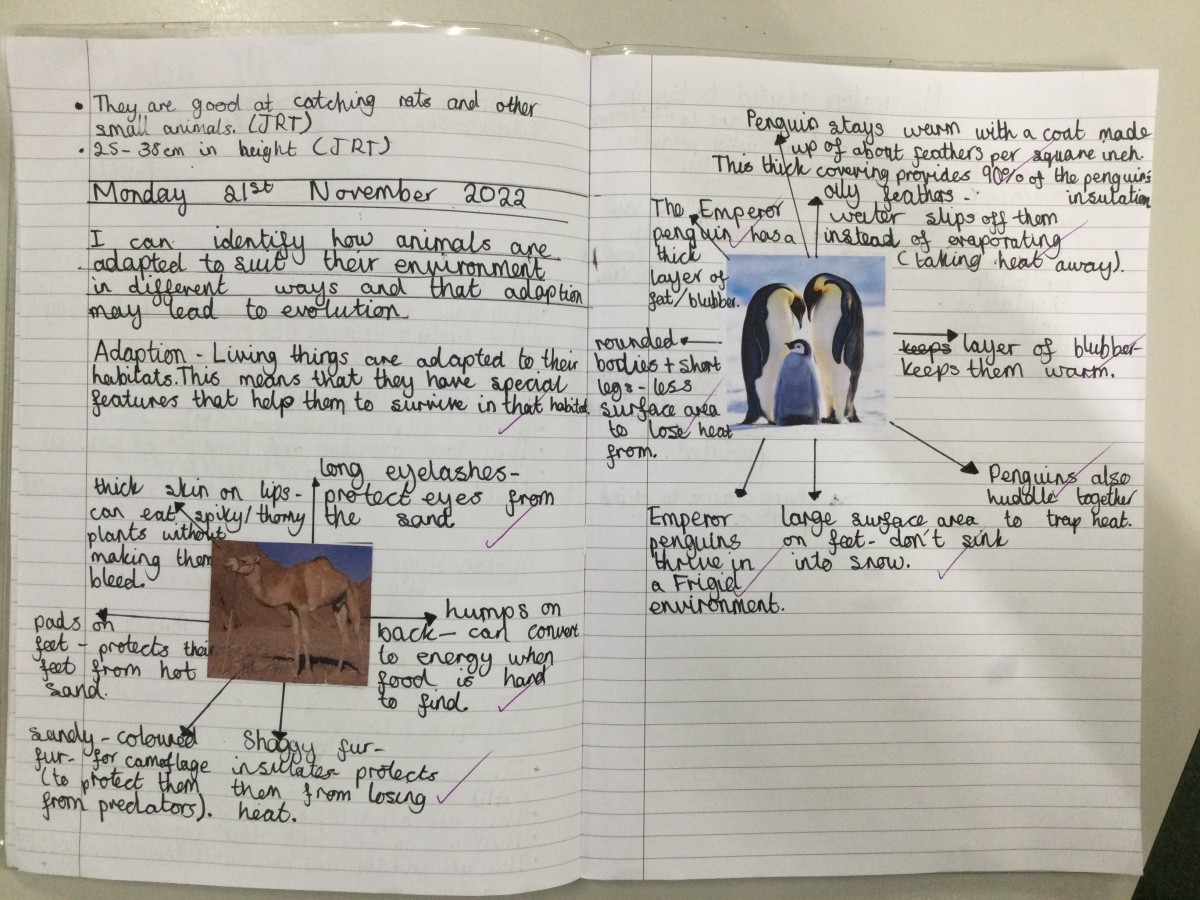 • They are good at catching rats and other
small animals. (JRT)
• 25-38cm in height (JRT)
Monday 21st November 2022
I can identify how animals are
adapted to suit their environment
in different ways and that adaption
may lead to evolution
Adaption - Living things are adapted to their
habitats. This means that they have special
features that help them to survive in that habitat.
long eyelashes-
protect eyes from
the sand
thick skin on lips-
can eat spiky/thorny
plants without
making them
bleed.
pads on
feet - protects their
feet from hot
sand.
humps on
back- can convert
to energy when
food is hard
to find.
sandy-coloured
fur- for camoflage
(to protect them
from predators).
Shaggy fur-
insulates protects
them from losing
heat.
Penguin stays warm with a coat made
up of about feathers per square inch.
This thick covering provides 90% of the penguin's
insulation
oily feathers -
water slips off them
instead of evaporating
(taking heat away).
The Emperor
penguin has a
thick
layer of
fat/blubber.
rounded
bodies + short
legs - less
surface area
to lose heat
from.
keeps layer of blubber-
keeps them warm.
Penguins also
huddle together
to trap heat.
Emperor
penguins
thrive in
a Frigid
environment.
large surface area
on feet- don't sink
into snow.